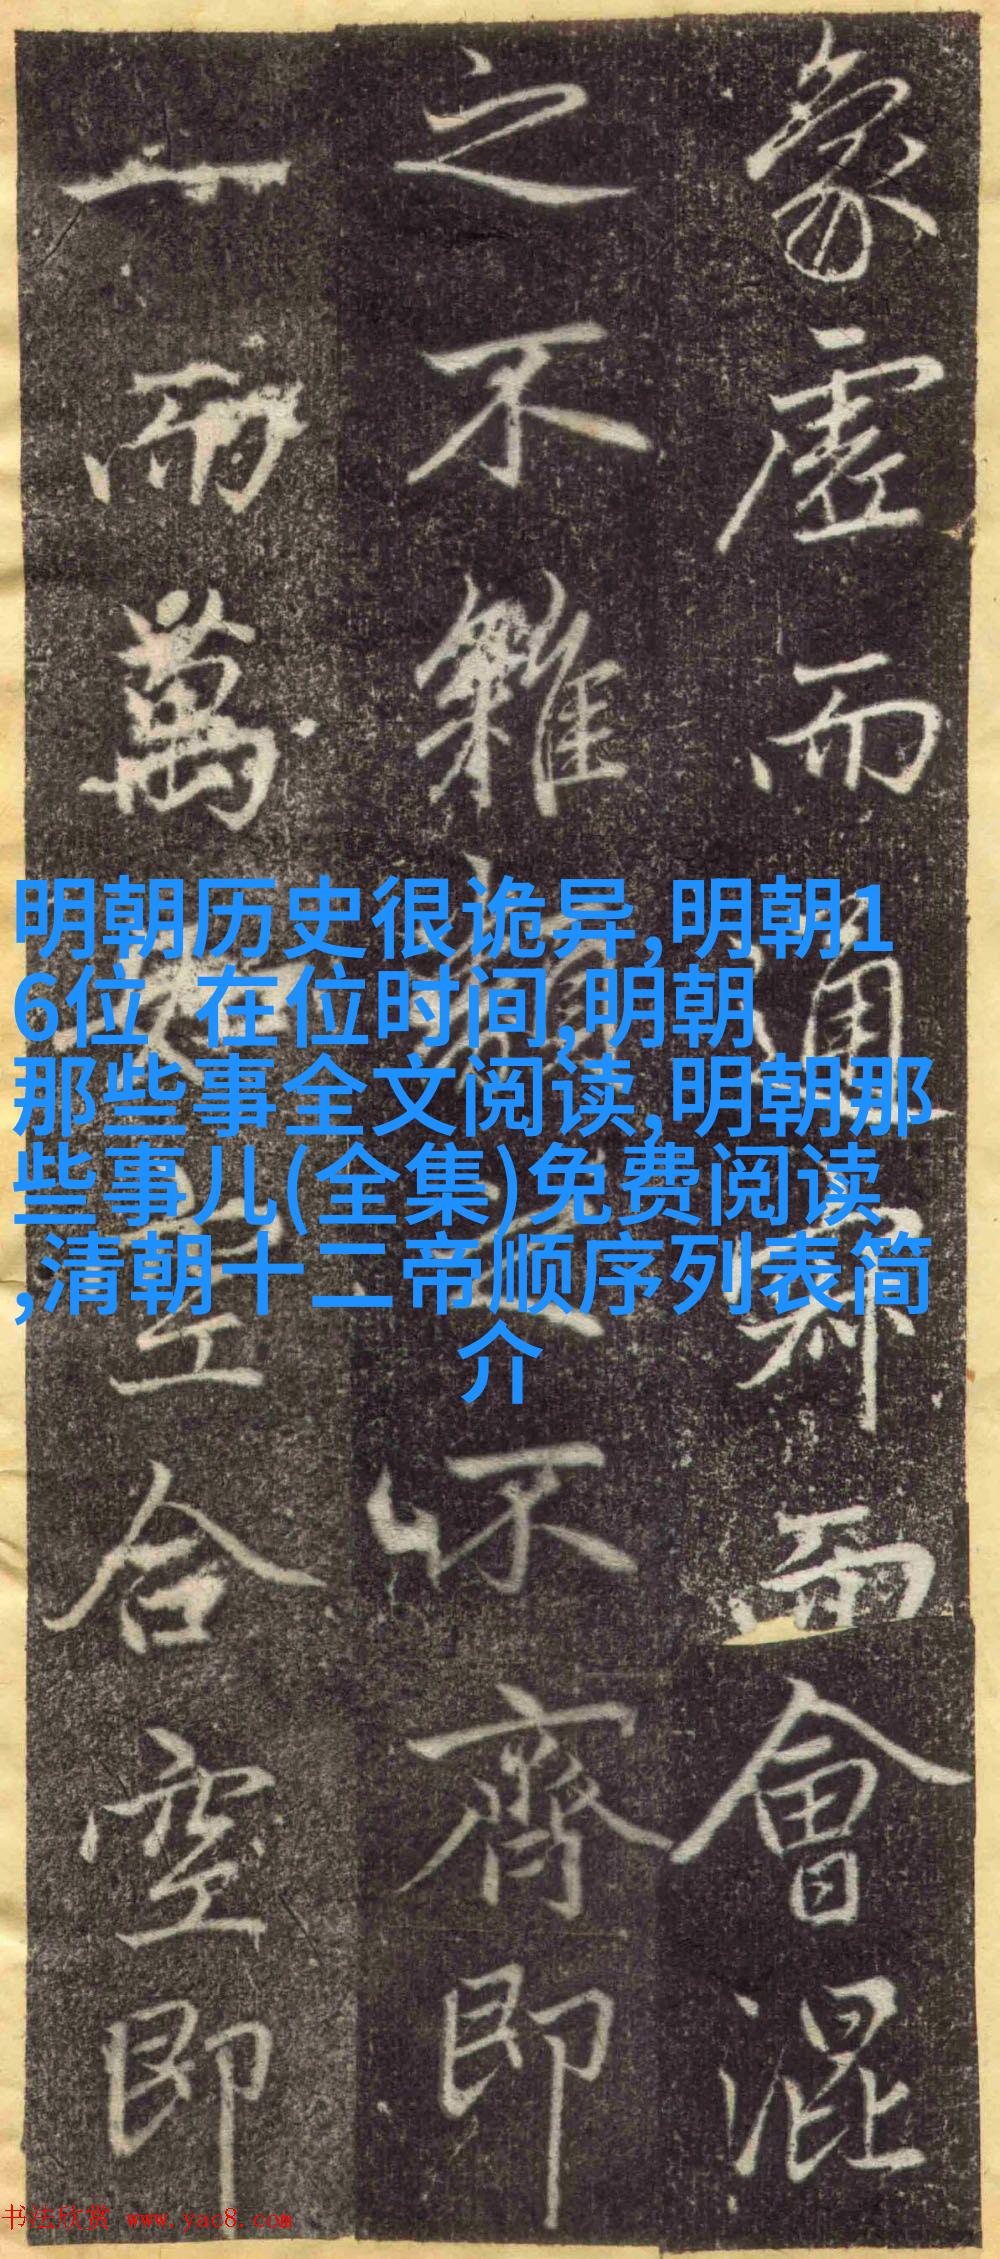 象虛而通寂而會混
之不雜類之不齊即
一而萬以空合空即
明朝历史很诡异,明朝1
6位 在位时间,明朝
那些事全文阅读,明朝那
些事儿(全集)免费阅读
,清朝十二 帝顺序列表简
介
书法欣赏 www.yac8.com